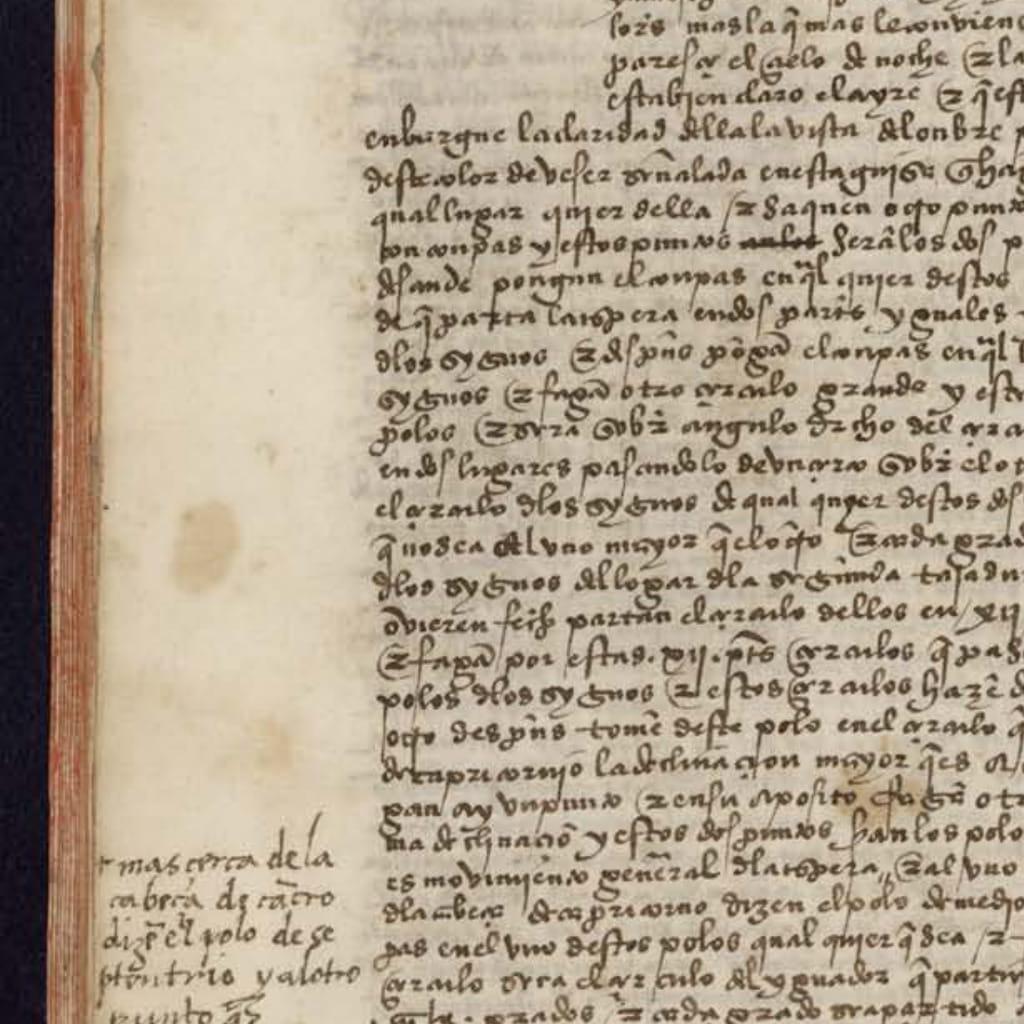 lors mas la q̃ mas le conviene
pareser el çielo de noche ⁊ la
esta bien claro el ayre ⁊ q̃ est
enburgue la claridad della la vista del onbre
deste color deve ser señalada en esta guisa
qual lugar quier della ⁊ saquen otro punto
con conpas y estos puntos seran los dos
desande pongan el conpas en q̃l quier destos
de q̃ parta la espera en dos partes yguales
dlos sygnos ⁊ despũs põgã el conpas en q̃l
sygnos ⁊ fagã otro çirculo grande y este
polos ⁊ sera sobre angulo drcho del çir
en dos lugares pasandolo de vn arco sobre el ot
el çirculo dlos sygnos de qual quyer destos dos
q̃ no sea el vno mayor q̃ el otro ⁊ cada grad
dlos sygnos del logar dla segunda tajadu
ovieren fecho partan el çirculo dellos en xii
⁊ fagã por estas .xii. ptes çirculos q̃ pas
polos dlos sygnos ⁊ estos çirculos hazẽ
otro despũs tomẽ deste polo en el çirculo
de capricornio la declinaçion mayor q̃ es
gan ay vn punto ⁊ en su oposito fagã otr
ma declinaçiõ y estos dos puntos son los polo
es movimiento general dla espera ⁊ al vno
dla cabeça de capricorno dizen el polo de medio
pas en el vno destos polos qual quier q̃ sea ⁊
çirculo sera el çirculo del yguador q̃ partir
grados ⁊ cada grado sera partido
mas çerca de la
cabeça de cãcro
dizẽ el polo de se
ptentrio y al otro
punto